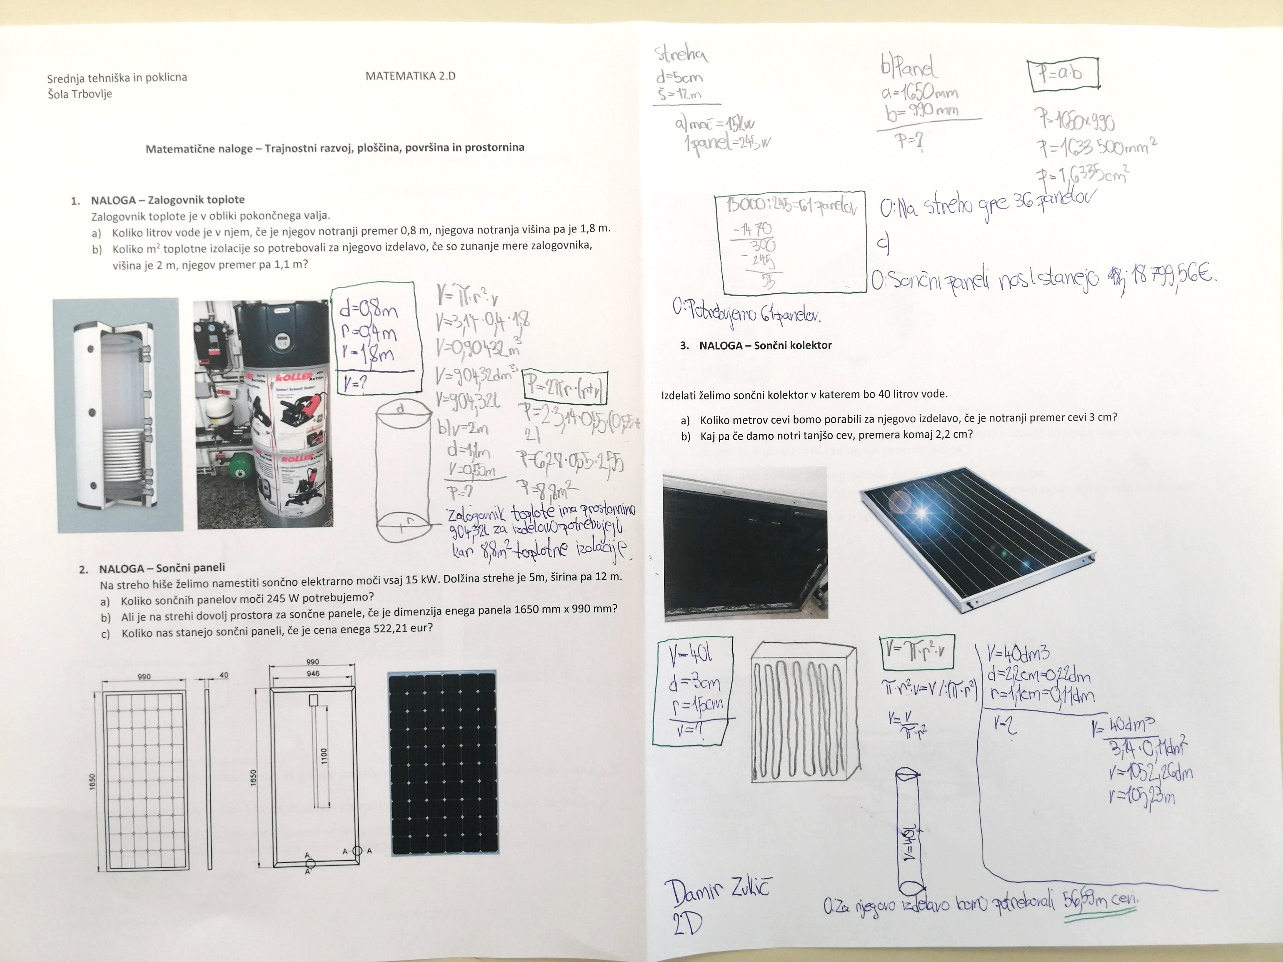 Srednja tehniška in poklicna
Šola Trbovlje
MATEMATIKA 2.D
Matematične naloge – Trajnostni razvoj, ploščina, površina in prostornina
1. NALOGA – Zalogovnik toplote
Zalogovnik toplote je v obliki pokončnega valja.
a) Koliko litrov vode je v njem, če je njegov notranji premer 0,8 m, njegova notranja višina pa je 1,8 m.
b) Koliko m² toplotne izolacije so potrebovali za njegovo izdelavo, če so zunanje mere zalogovnika,
višina je 2 m, njegov premer pa 1,1 m?
d=0,8m
r=0,4m
v=1,8m
V=?
V=π·r²·v
V=3,14·0,4·1,8
V=0,90432m³
V=90432dm³
V=904,32l
b) v=2m
d=1,1m
r=0,55m
P=?
P=2πr·(r+v)
P=2·3,14·0,55·(0,55+
2)
P=6,28·0,55·2,55
P=8,8m²
d
r
KOLLER
KOLLER
Zalogovnik toplote ima prostornino
904,32l za izdelavo potrebujejo
kar 8,8m² toplotne izolacije.
2. NALOGA – Sončni paneli
Na streho hiše želimo namestiti sončno elektrarno moči vsaj 15 kW. Dolžina strehe je 5m, širina pa 12 m.
a) Koliko sončnih panelov moči 245 W potrebujemo?
b) Ali je na strehi dovolj prostora za sončne panele, če je dimenzija enega panela 1650 mm x 990 mm?
c) Koliko nas stanejo sončni paneli, če je cena enega 522,21 eur?
990
40
1650
990
946
1650
1100
A
A
A
A
streha
d=5cm
š=12m
a) moč=15kW
1 panel=245W
b) Panel
a=1650mm
b=990mm
P=?
P=a·b
P=1650×990
P=1633500mm²
P=1,6335cm²
15000:245=61 panelov
-1470
300
-245
55
O: Potrebujemo 61 panelov.
O: Na streho gre 36 panelov
c)
O: Sončni paneli nas stanejo 18 799,56€.
3. NALOGA – Sončni kolektor
Izdelati želimo sončni kolektor v katerem bo 40 litrov vode.
a) Koliko metrov cevi bomo porabili za njegovo izdelavo, če je notranji premer cevi 3 cm?
b) Kaj pa če damo notri tanjšo cev, premera komaj 2,2 cm?
V=40l
d=3cm
r=1,5cm
v=?
V=π·r²·v
π·r²·v=V /:(π·r²)
v=V/π·r²
V=40l
V=40dm3
d=2,2cm=0,22dm
r=1,1cm=0,11dm
v=?
v=40dm³
3,14·0,11dm²
v=1052,26dm
v=105,23m
Damir Zukić
2D
O: Za njegovo izdelavo bomo potrebovali 56,69m cevi.